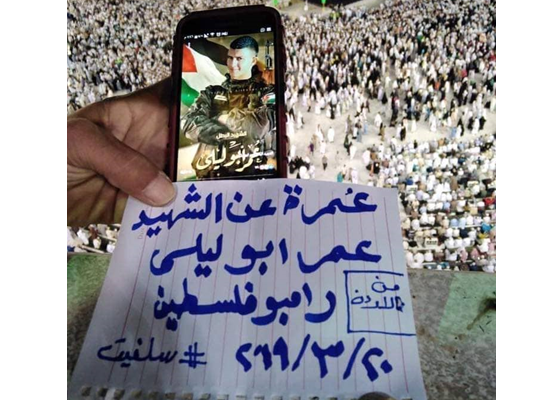 الشهيد البطل
عمر أبو ليلى
عُمرة عن الشهيد
عمر ابو ليلى
رامبو فلسطين
من
٢٠١٩/٣/٢٠ # سلفيت